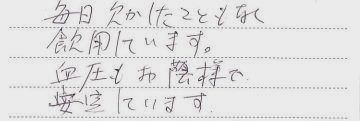 毎日欠かしたこともなく
飲用しています。
血圧もお蔭様で
安定しています